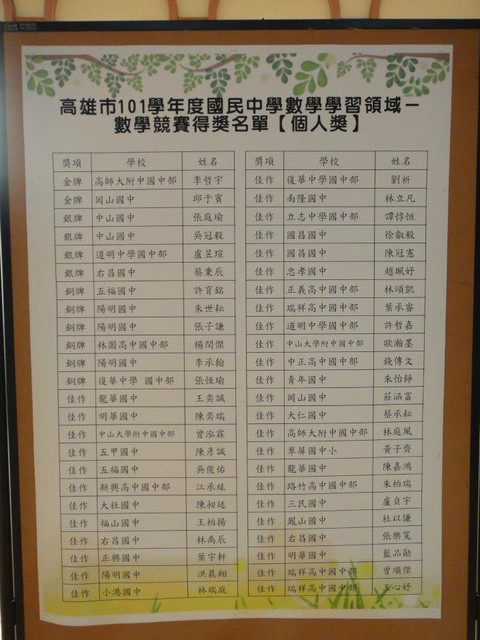 高雄市101學年度國民中學數學學習領域－
數學競賽得獎名單【個人獎】
獎項 學校 姓名
金牌 高師大附中國中部 李哲宇
金牌 岡山國中 邱于賓
銀牌 中山國中 張庭瑜
銀牌 中山國中 吳冠毅
銀牌 道明中學國中部 盧昱瑄
銀牌 右昌國中 蔡秉辰
銅牌 五福國中 許育銘
銅牌 陽明國中 朱世耘
銅牌 陽明國中 張子謙
銅牌 林園高中國中部 楊閔傑
銅牌 陽明國中 李承翰
銅牌 復華中學 國中部 張恆瑜
佳作 龍華國中 王奕誠
佳作 明華國中 陳奕瑞
佳作 中山大學附中國中部 曾泓霖
佳作 五甲國中 陳彥誠
佳作 五福國中 吳俊佑
佳作 新興高中國中部 江承紘
佳作 大社國中 陳昶廷
佳作 福山國中 王柏揚
佳作 右昌國中 林禹辰
佳作 正興國中 葉宇軒
佳作 陽明國中 洪晨翔
佳作 小港國中 林瑞庭
獎項 學校 姓名
佳作 復華中學國中部 劉祈
佳作 南隆國中 林立凡
佳作 立志中學國中部 譚惇恒
佳作 國昌國中 徐叡毅
佳作 國昌國中 陳冠憲
佳作 忠孝國中 趙珮妤
佳作 正義高中國中部 林頌凱
佳作 瑞祥高中國中部 葉承睿
佳作 道明中學國中部 許哲嘉
佳作 中山大學附中國中部 歐瀚墨
佳作 中正高中國中部 錢傳文
佳作 青年國中 朱怡錚
佳作 岡山國中 莊涵富
佳作 大仁國中 蔡承耘
佳作 高師大附中國中部 林庭風
佳作 翠屏國中小 黃子齊
佳作 龍華國中 陳嘉鴻
佳作 路竹高中國中部 朱柏瑞
佳作 三民國中 盧貞宇
佳作 鳳山國中 杜以謙
佳作 右昌國中 張樂寬
佳作 明華國中 藍品勛
佳作 瑞祥高中國中部 曾順傑
佳作 瑞祥高中國中部 王心妤